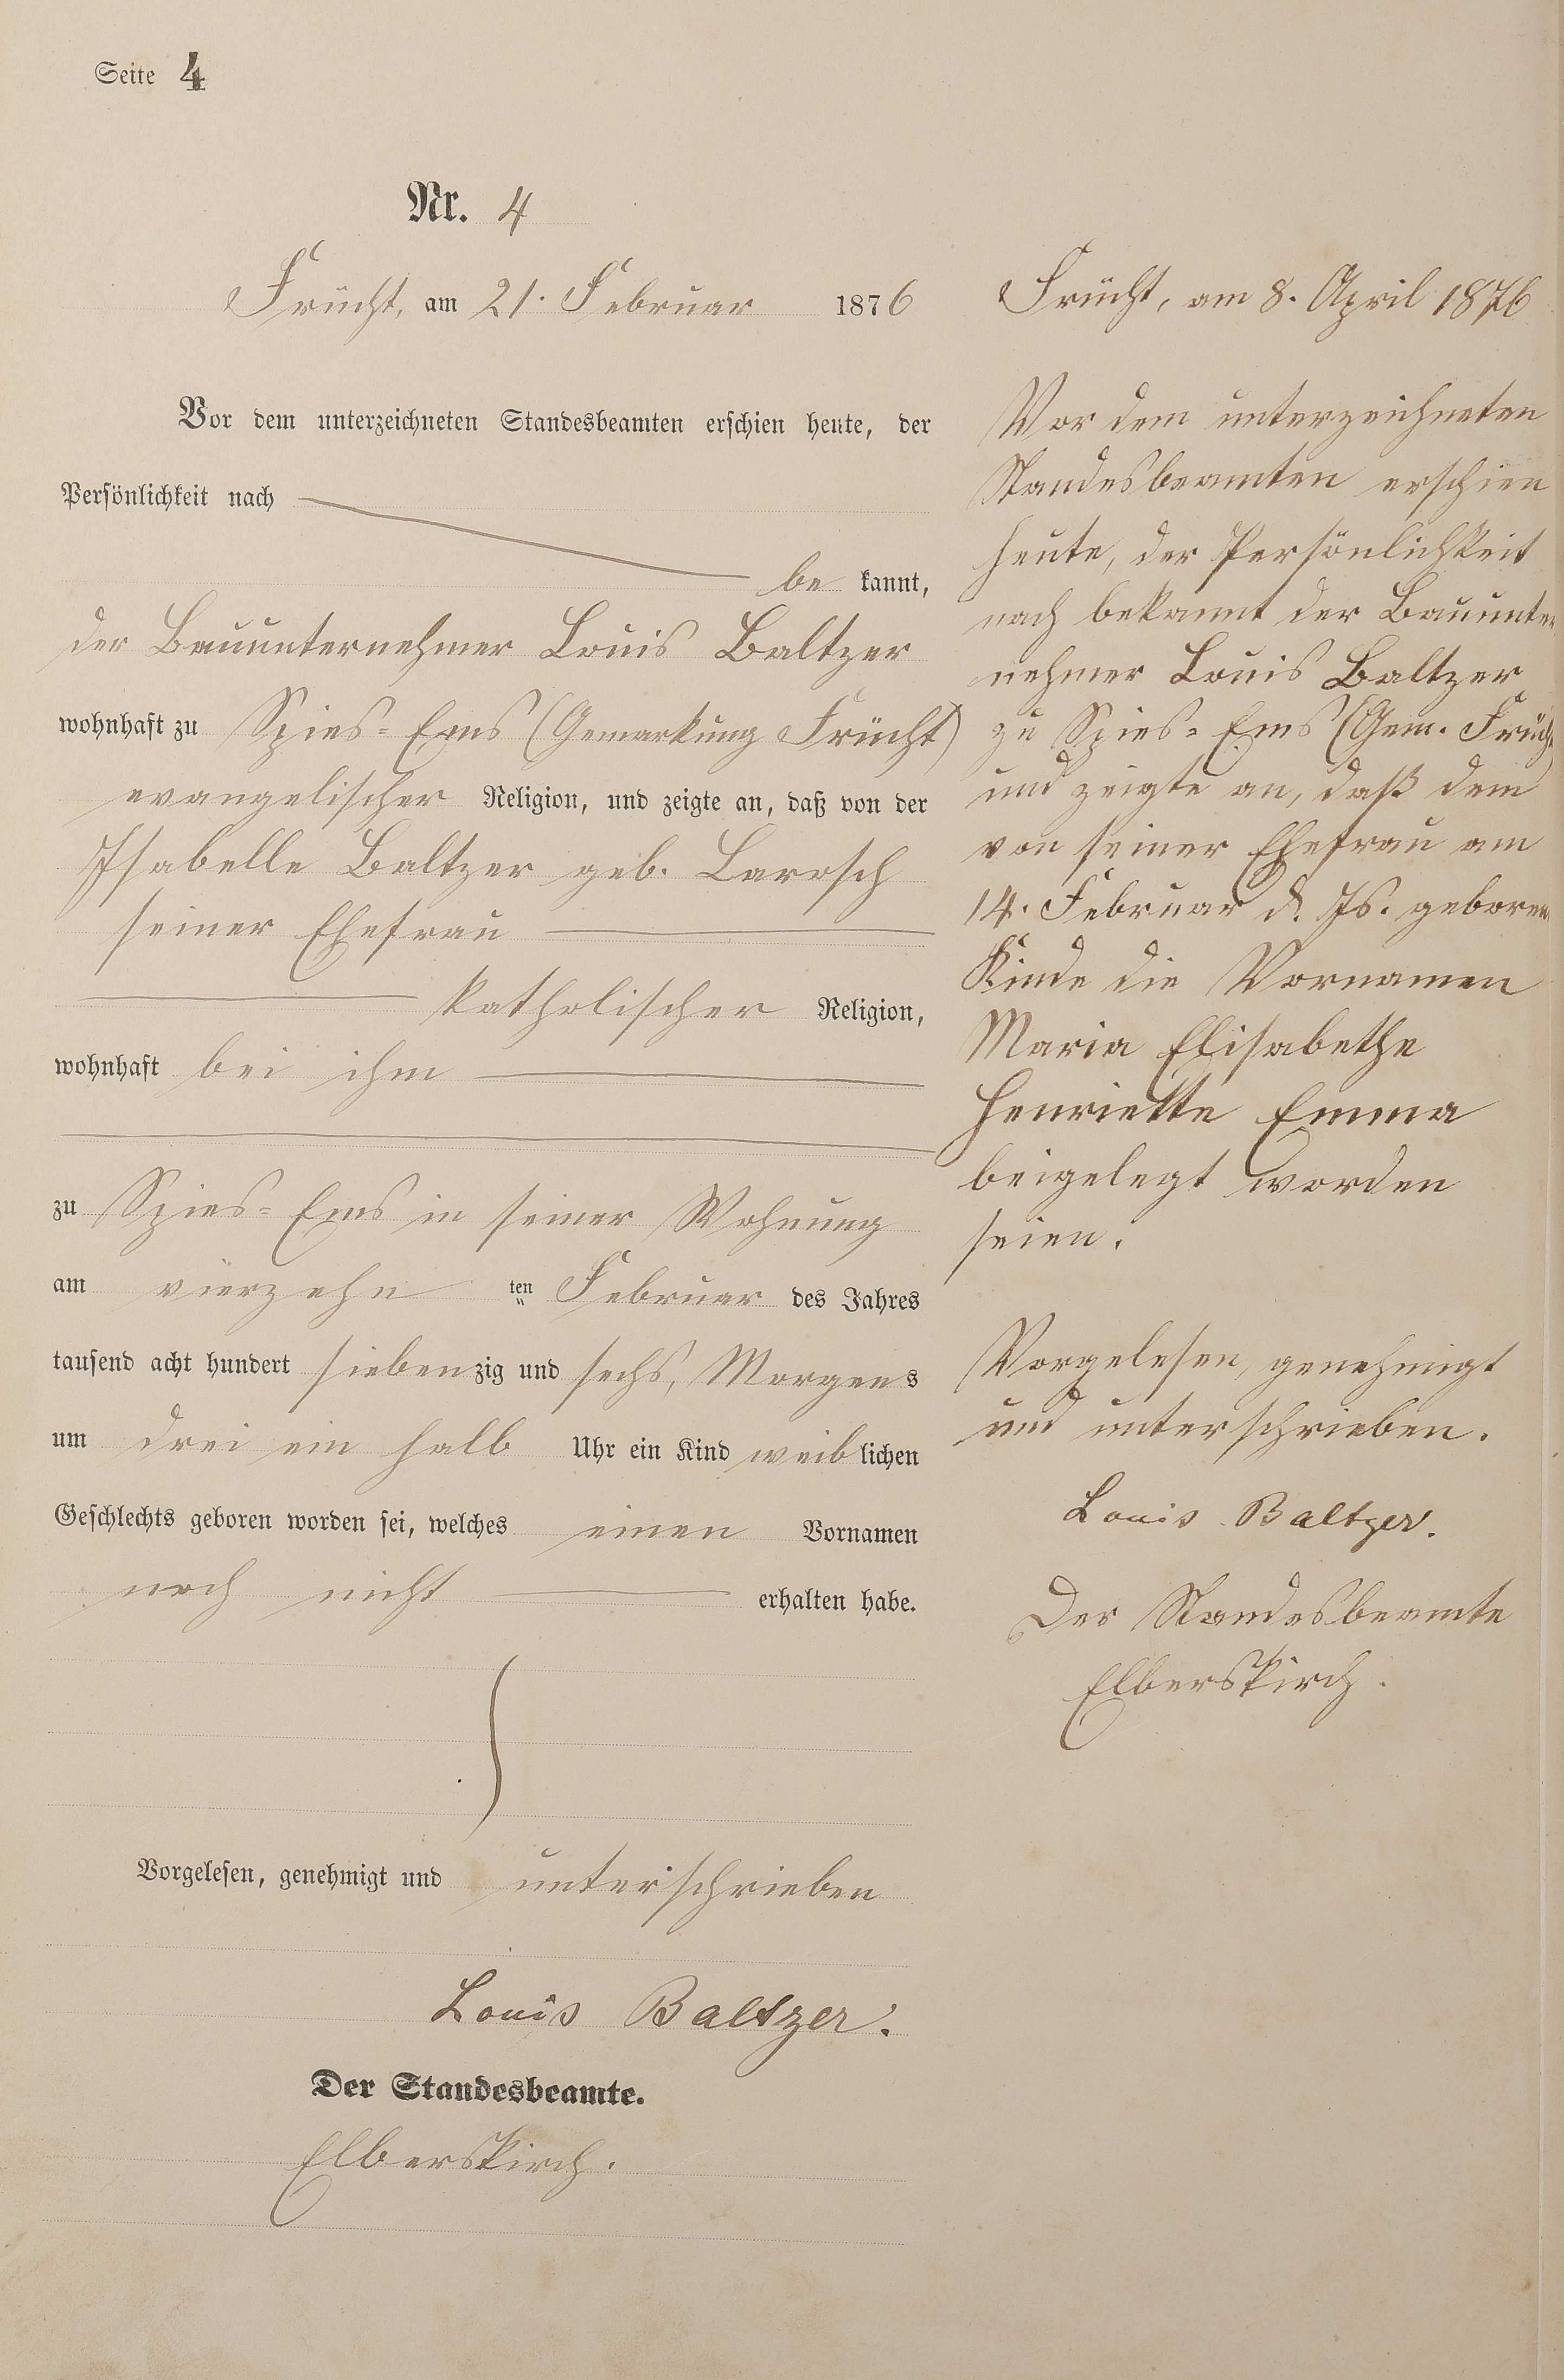 Seite 4
Nr. 4
Frücht, am 21. Februar 1876
Vor dem unterzeichneten Standesbeamten erschien heute, der
Persönlichkeit nach
be kannt,
der Bauunternehmer Louis Baltzer
wohnhaft zu Spies=Ems (Gemarkung Frücht)
evangelischer Religion, und zeigte an, daß von der
Isabelle Baltzer geb. Larosch
seiner Ehefrau
katholischer Religion,
wohnhaft bei ihm
zu Spies=Ems in seiner Wohnung
am vierzehn ten Februar des Jahres
tausend acht hundert siebenzig und sechs, Morgens
um drei ein halb Uhr ein Kind weiblichen
Geschlechts geboren worden sei, welches einen Vornamen
noch nicht erhalten habe.
Vorgelesen, genehmigt und unterschrieben
Louis Baltzer.
Der Standesbeamte.
Elberskirch.
Frücht, am 8. April 1876
Vor dem unterzeichneten
Standesbeamten erschien
heute, der Persönlichkeit
nach bekannt der Bauunter
nehmer Louis Baltzer
zu Spies=Ems (Gem. Frücht)
und zeigte an, daß dem
von seiner Ehefrau am
14. Februar d. Js. geborenen
Kinde die Vornamen
Maria Elisabethe
Henriette Emma
beigelegt worden
seien.
Vorgelesen, genehmigt
und unterschrieben.
Louis Baltzer.
Der Standesbeamte
Elberskirch.